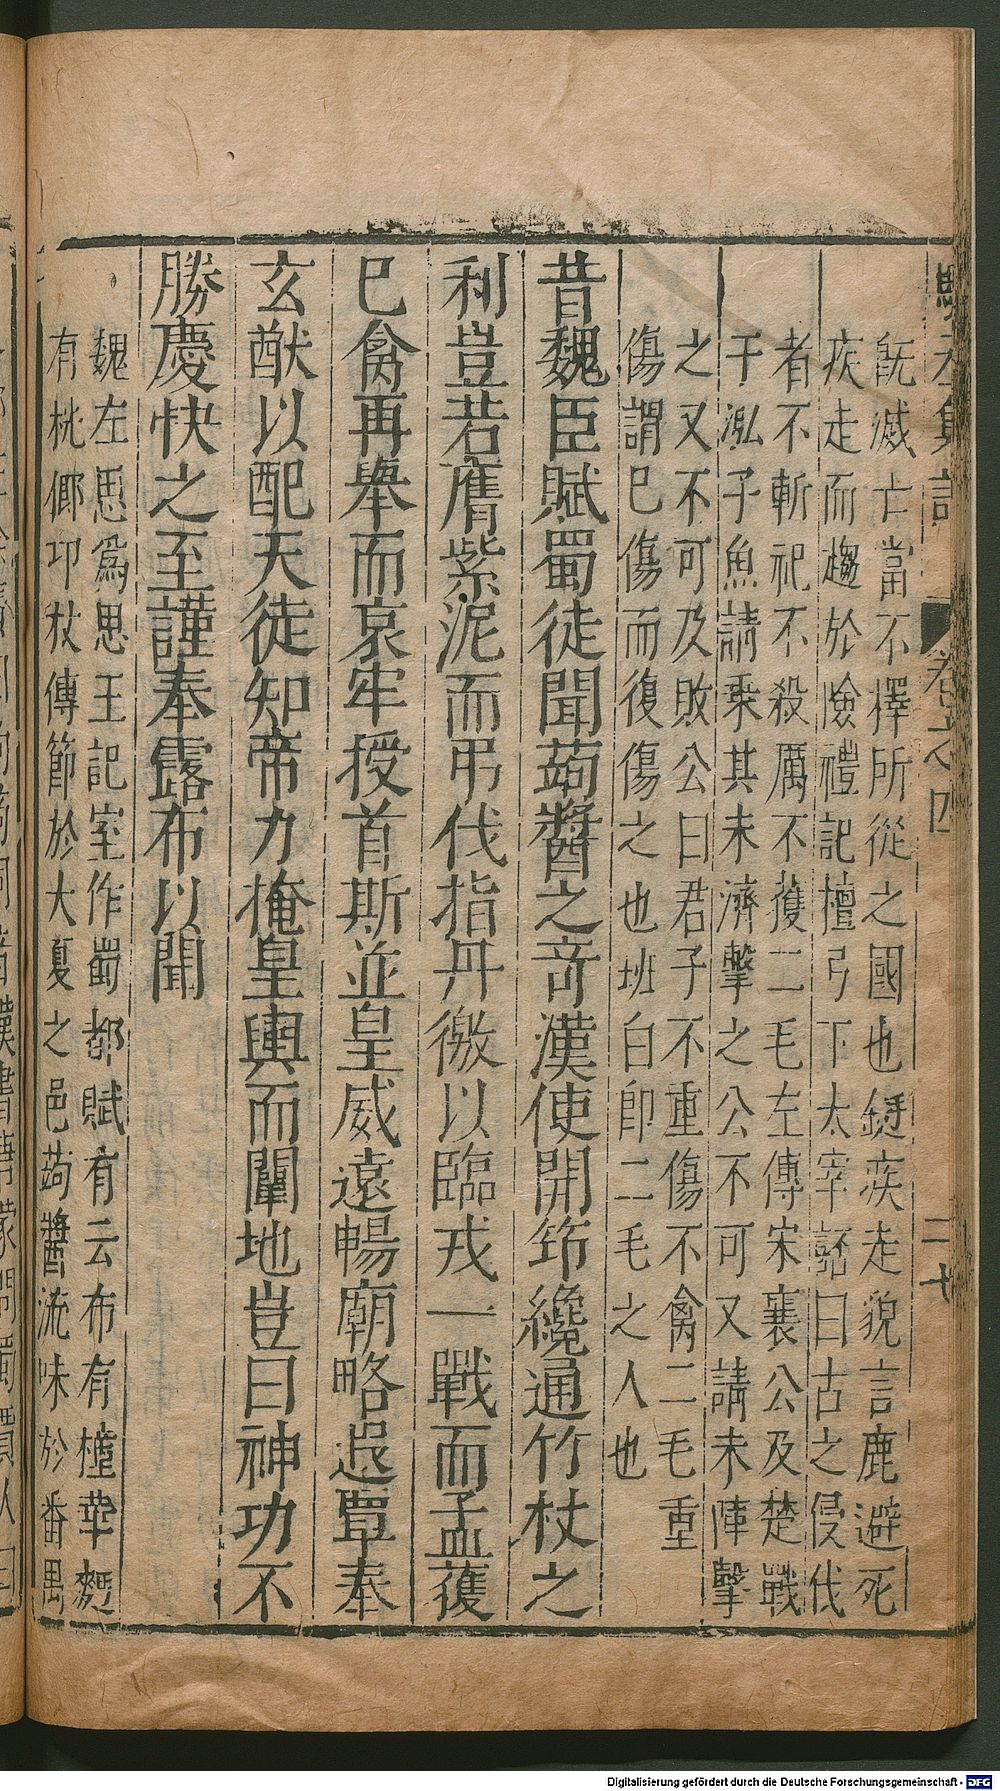 既滅亡當不擇所從之國也鋌疾走貌言鹿避死
疾走而趨於險禮記檀弓下太宰嚭曰古之侵伐
者不斬祀不殺厲不獲二毛左傳宋襄公及楚戰
于泓子魚請乘其未濟擊之公不可又請未陣擊
之又不可及敗公曰君子不重傷不禽二毛重
傷謂已傷而復傷之也班白即二毛之人也
昔魏臣賦蜀徒聞蒟醬之奇漢使開筇纔通竹杖之
利豈若膺紫泥而弔伐指丹徼以臨戎一戰而孟獲
巳禽再舉而哀牢授首斯並皇威遠暢廟略遐覃奉
玄猷以配天徒知帝力掩皇輿而闡地豈曰神功不
勝慶快之至謹奉露布以聞
魏左思爲思王記室作蜀都賦有云布有橦華麪
有桄榔卭杖傳節於大夏之邑蒟醬流味於番禺
卷之四
二十
Digitalisierung gefördert durch die Deutsche Forschungsgemeinschaft - DFG